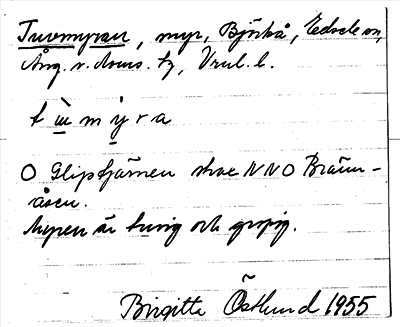 Tuvmyran, myr, Björkå, Edsele sn,
Ång. v. doms. tg, Vrul. l.
t ùu m ỳ r a
O Glipstjärnen strax NNO Bränn-
åsen.
Myren är tuvig och gropig.
Birgitta Östlund 1955